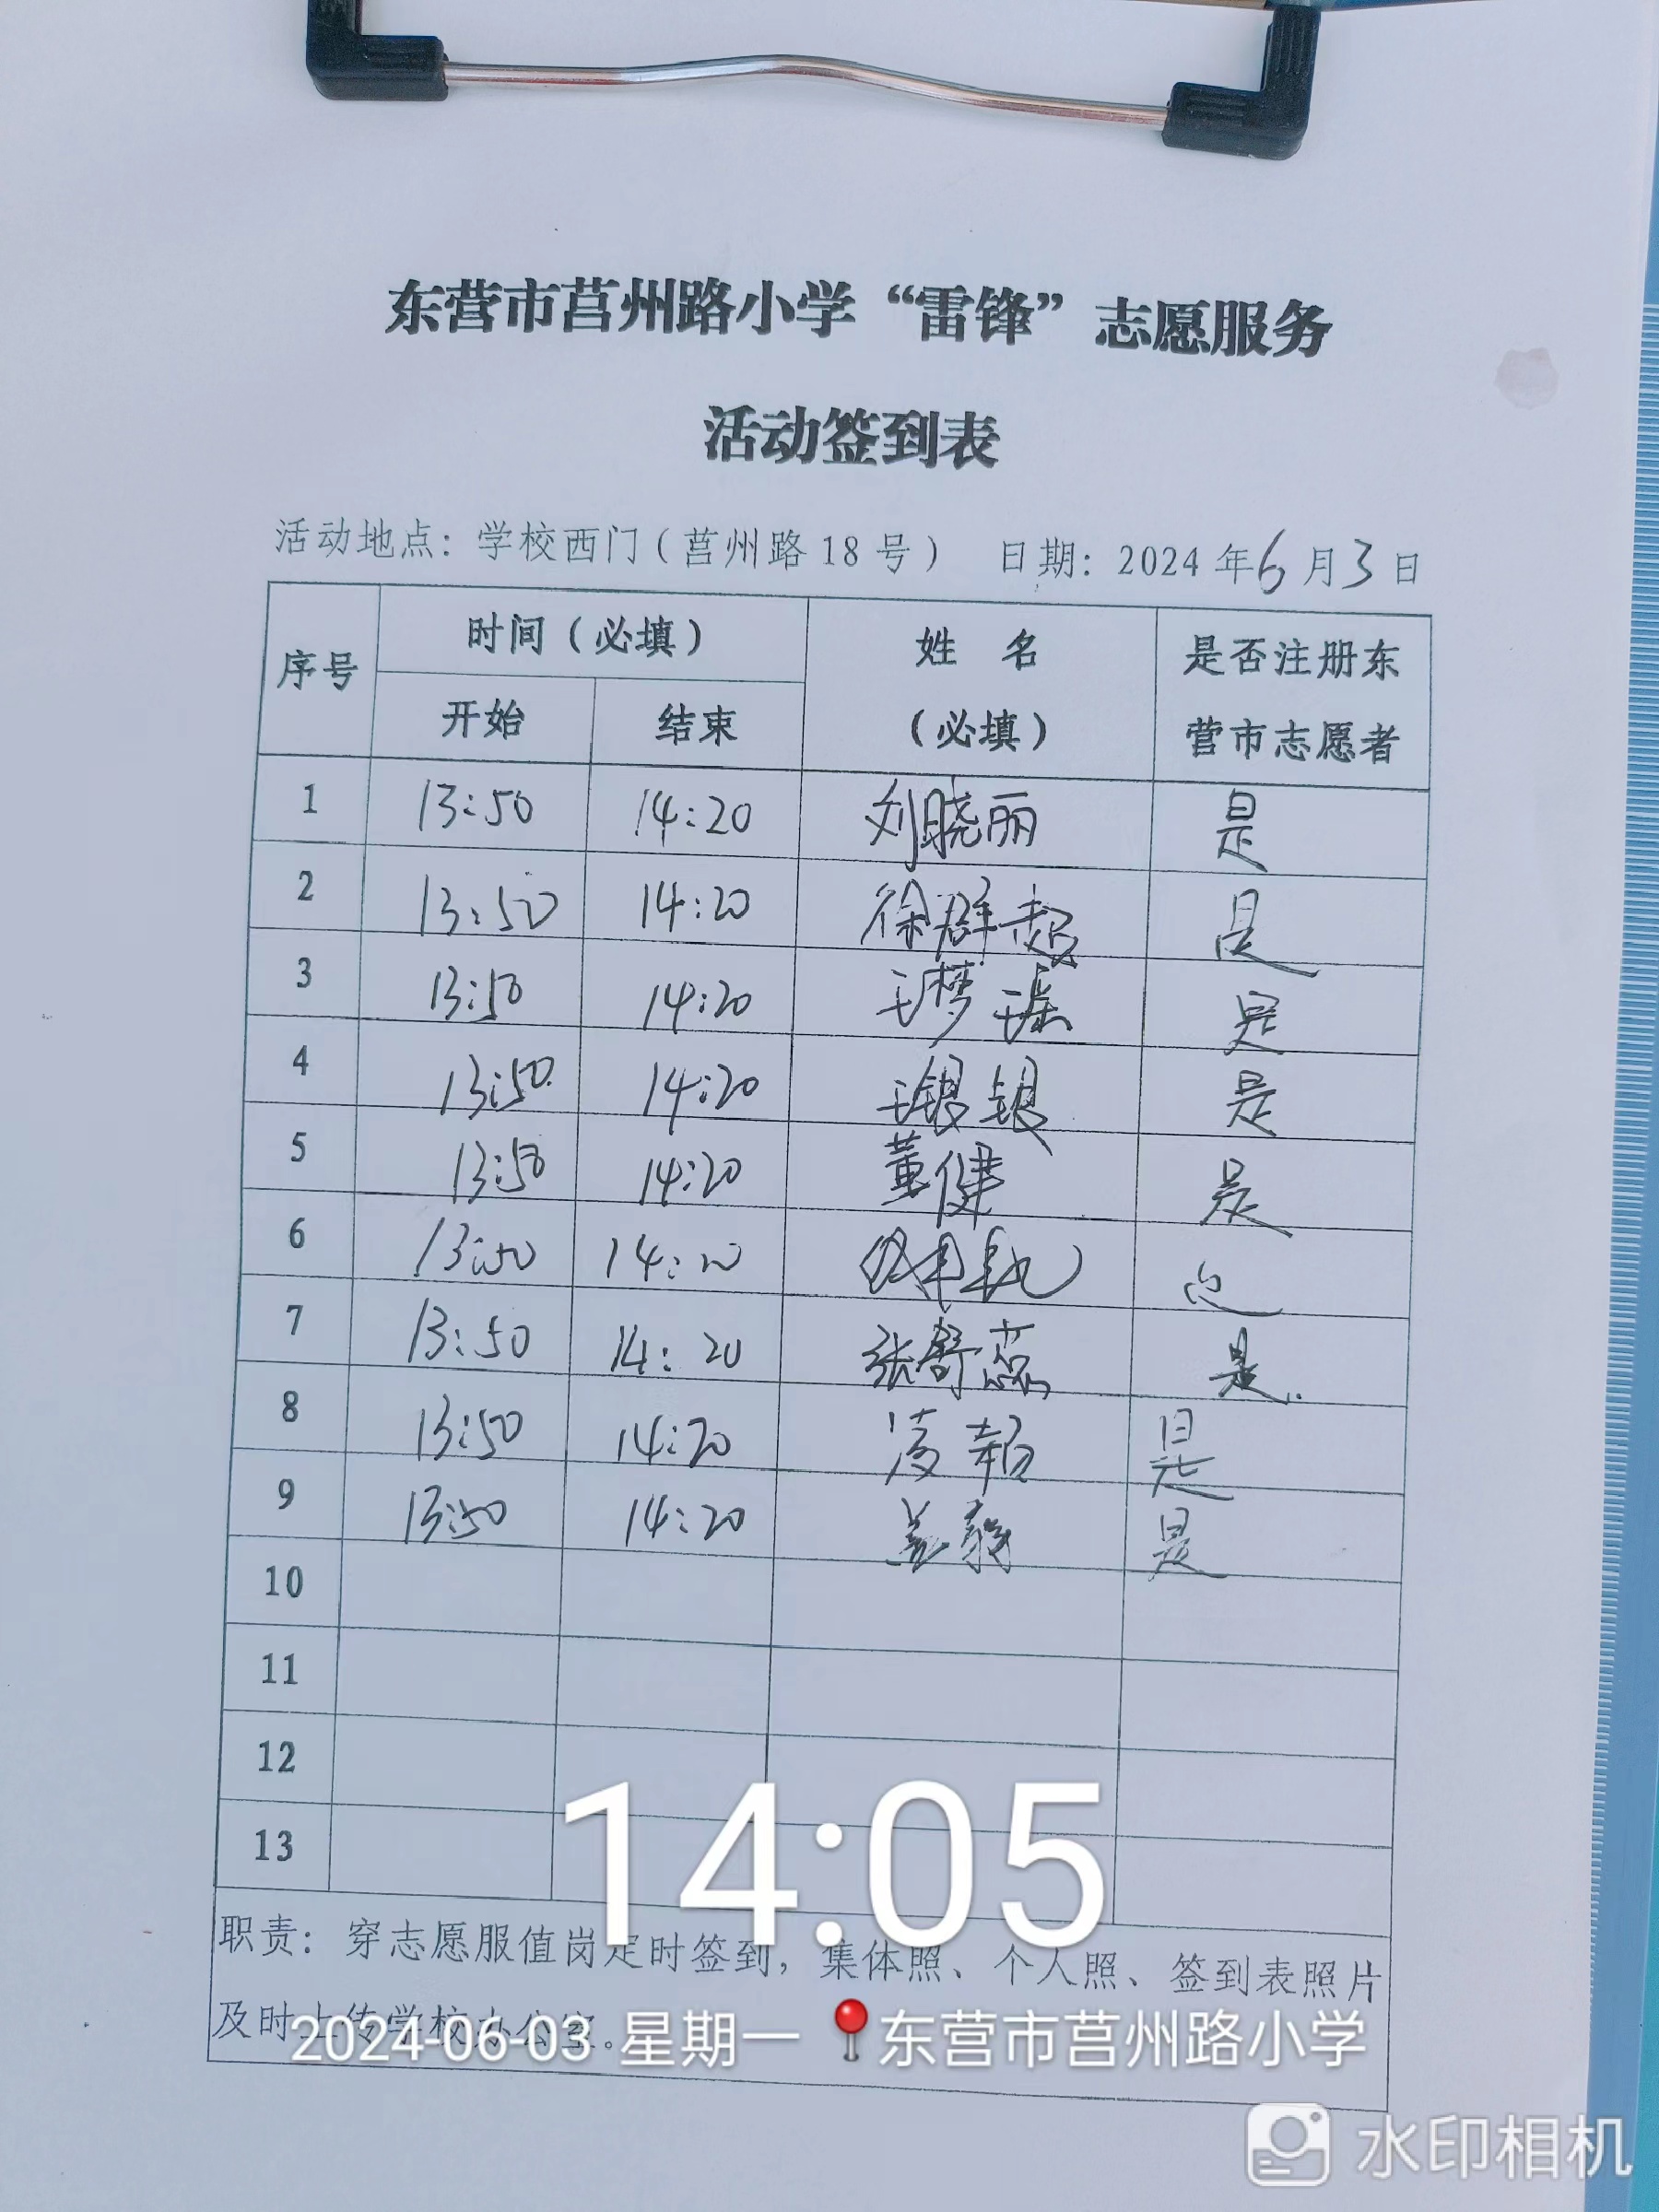 东营市莒州路小学“雷锋”志愿服务
活动签到表
活动地点：学校西门（莒州路18号） 日期：2024年6月3日
序号 时间（必填） 姓 名 是否注册东
开始 结束 （必填） 营市志愿者
1 13:50 14:20 刘晓丽 是
2 13:50 14:20 徐群超 是
3 13:50 14:20 王梦瑶 是
4 13:50 14:20 王银银 是
5 13:50 14:20 董健 是
6 13:50 14:20
7 13:50 14:20 张舒蕊 是.
8 13:50 14:20 凌 是
9 13:50 14:20 盖 是
10
11
12
13
14:05
职责：穿志愿服值岗定时签到，集体照、个人照、签到表照片
及时上传学校办公室。
2024-06-03 星期一 东营市莒州路小学
水印相机